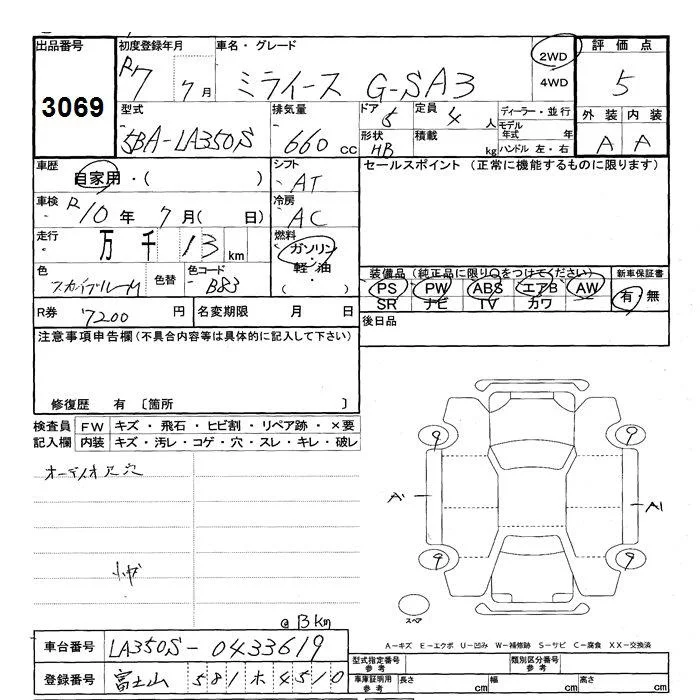 出品番号
3069
初度登録年月
R7 7月
車名・グレード
ミライース G-SA3
2WD
4WD
評価点
5
型式
5BA-LA350S
排気量
660 cc
ドア
5
定員
4人
形状
HB
積載
kg
ディーラー・並行
モデル年式 年
ハンドル 左・右
外装 内装
A A
車歴
自家用・( )
シフト
AT
セールスポイント (正常に機能するものに限ります)
車検
R10年 7月( 日)
冷房
AC
走行
万 千 13 km
燃料
ガソリン・
軽・油・
( )
色
スカイブルーM
色替
色コード
B83
装備品 (純正品に限り○をつけてください)
PS PW ABS エアB AW
SR ナビ TV カワ
新車保証書
有・無
R券 7200 円
名変期限 月 日
後日品
注意事項申告欄(不具合内容等は具体的に記入して下さい)
修復歴 有 〔箇所 〕
検査員 FW キズ・飛石・ヒビ割・リペア跡・×要
記入欄 内装 キズ・汚レ・コゲ・穴・スレ・キレ・破レ
オーディオレス穴
小キズ
@13km
9 9
A1 A1
9 9
スペア
A-キズ E-エクボ U-凹み W-補修跡 S-サビ C-腐食 XX-交換済
車台番号 LA350S-0433619
登録番号 富士山 581 ホ 4510
型式指定番号 参考
類別区分番号 参考
車庫証明用 参考
長さ cm
幅 cm
高さ cm